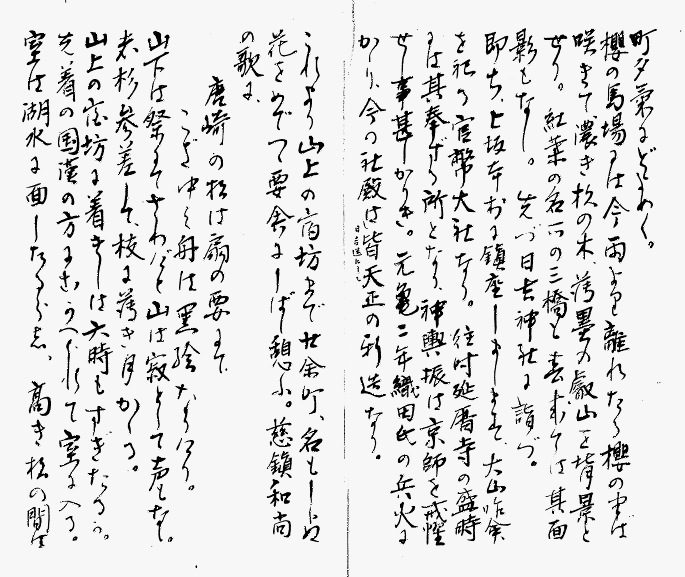 町夕氣にどよめく。
櫻の馬場には今雨より離れたる櫻の
咲きて濃き松の木、薄墨の叡山を背景と
せり。紅葉の名所の三橋も春来ては其面
影もなし。先づ日吉神社に詣づ。
即ち、上坂本村に鎮座しまして、大山咋命
を祀る官幣大社なり。往時延暦寺の盛時
には其奉ずる所となり、神輿振は京師を
せし事甚しかりき。元亀二年織田氏の兵火に
かゝり、今の社殿は皆天正の新造なり。
これより山上の宿坊まで廿余町、名もしらぬ
花をめでつ要舎にしば憩ふ。慈鎮和尚
の歌に、
唐崎の松は扇の要にて
こぎゆく舟は墨絵なりけり。
山下は祭にてさわげど山は寂として声もなし。
老杉参差して、枝に薄き月かゝる。
山上の宿坊に着きしは六時もすぎたるか。
先着の国漢の方にむかへられて室に入る。
室は湖水に面したるらし、高き松の間は